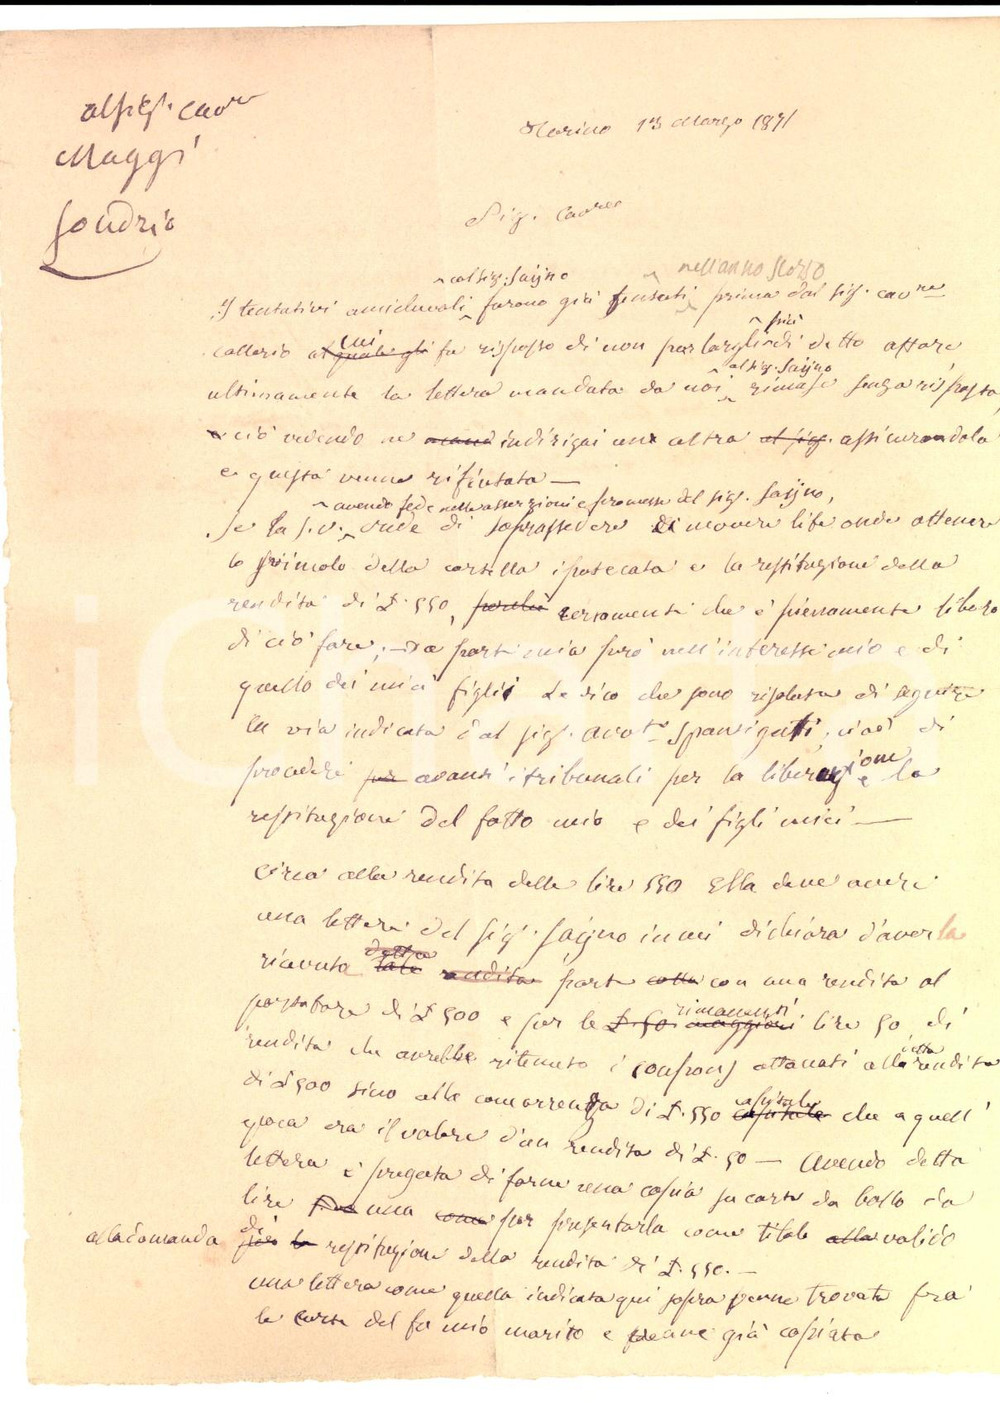 al sig. cavre
Maggi
Sondrio
Torino 13 Marzo 1871
Sig. Cavre
al sig. Sajno nell'anno scorso
I tentativi amichevoli furono già tentati prima dal sig. cavre
cui più
al quale gli fu risposto di non parlargli di detto affare
al sig. Sajno
ultimamente la lettera mandata da noi rimase senza risposta,
e ciò vedendo ne indirizai una altra al sig. assicurandola
e questa venne rifiutata —
avendo fede nelle asserzioni e promesse del sig. Sajno,
Se la S.V. crede di soprassedere di movere lite onde ottenere
lo svincolo della cartella ipotecata e la restituzione della
rendita di £. 550, perchè certamente che è pienamente libero
di ciò fare; — Da parte mia però nell'interesse mio e di
quello dei miei figli Le dico che sono risoluta di seguire
la via indicata dal sig. avvto Spansigatti, cioè di
procedere per avanti i tribunali per la liberazione e la
restituzione del fatto mio e dei figli miei —
Circa alla rendita delle lire 550 Ella deve avere
una lettera del sig. Sajno in cui dichiara d'averla
detta
ricevuta tale rendita parte colla con una rendita al
rimanenti
portatore di £ 500 e per le £. 50 maggiori lire 50 di
detta
rendita che avrebbe ritenuto i attacati alla rendita
capitale
di £ 500 sino alla concorrenza di £. 550 capitale che a quell'
epoca era il valore d'un rendita di £. 50 — Avendo detta
lettera è pregata di farne una copia su carta da bollo da
lire una come per presentarla come titolo alla valido
alla domanda di la restituzione della rendita di £. 550. —
una lettera come quella indicata qui sopra venne trovata fra
le carte del fu mio marito e venne già copiata